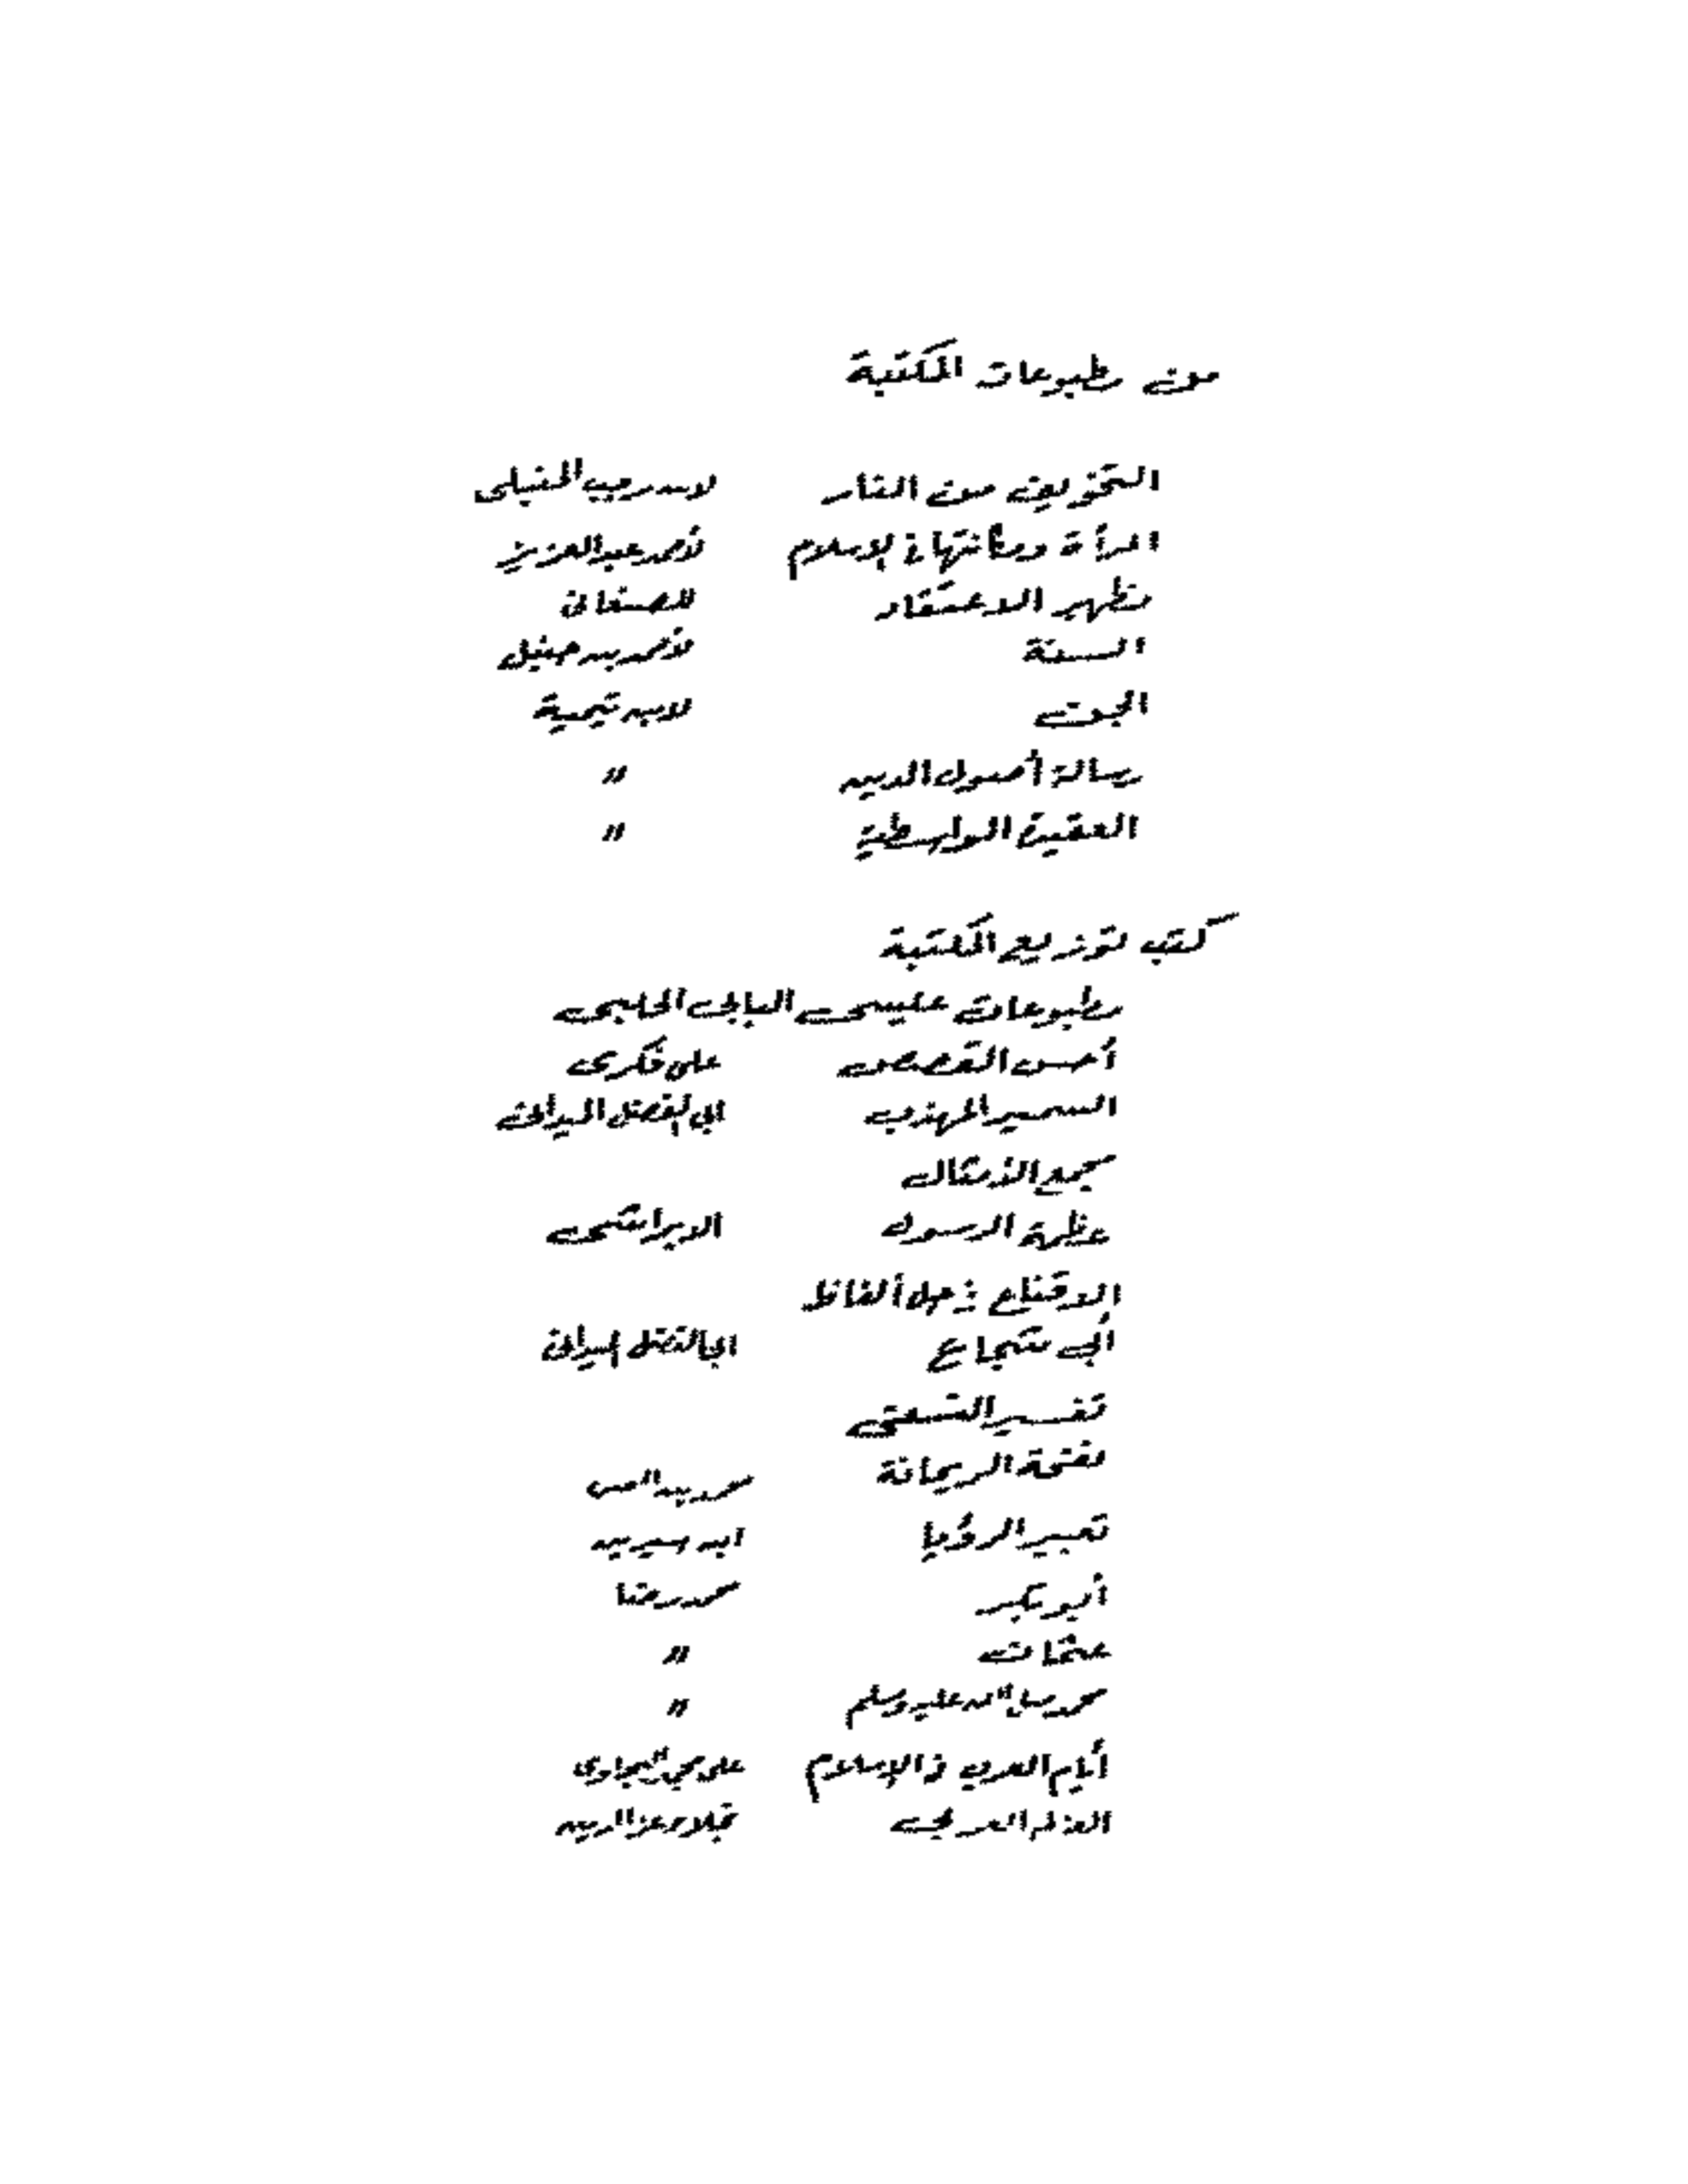 من مطبوعات المكتبة
التخويف من النار لابن رجب الحنبلى
المرأة ومكانتها فى الإسلام لأحمد عبد العزيز
تطهير الاعتقاد للصنعانى
السنة لأحمد بن حنبل
الجن لابن تيمية
رسالة أصول الدين "
العقيدة الواسطية "
كتب توزيع المكتبة
مطبوعات عيسى البابى الحلبى
أحسن القصص على فكرى
السمير المهذب
مجمع الأمثال ابى الفضل الميدانى
عظمة الرسول الابراشى
الاقناع فى حل ألفاظ
أبى شجاع
تفسير النسفى
نفحة الريحانة
تعبير الرؤيا ابن سيرين
أبو بكر محمد رضا
عثمان "
محمد صلى الله عليه وسلم "
أيام العرب فى الإسلام على محمد البجاوى
العالم العربى نجلاء عز الدين